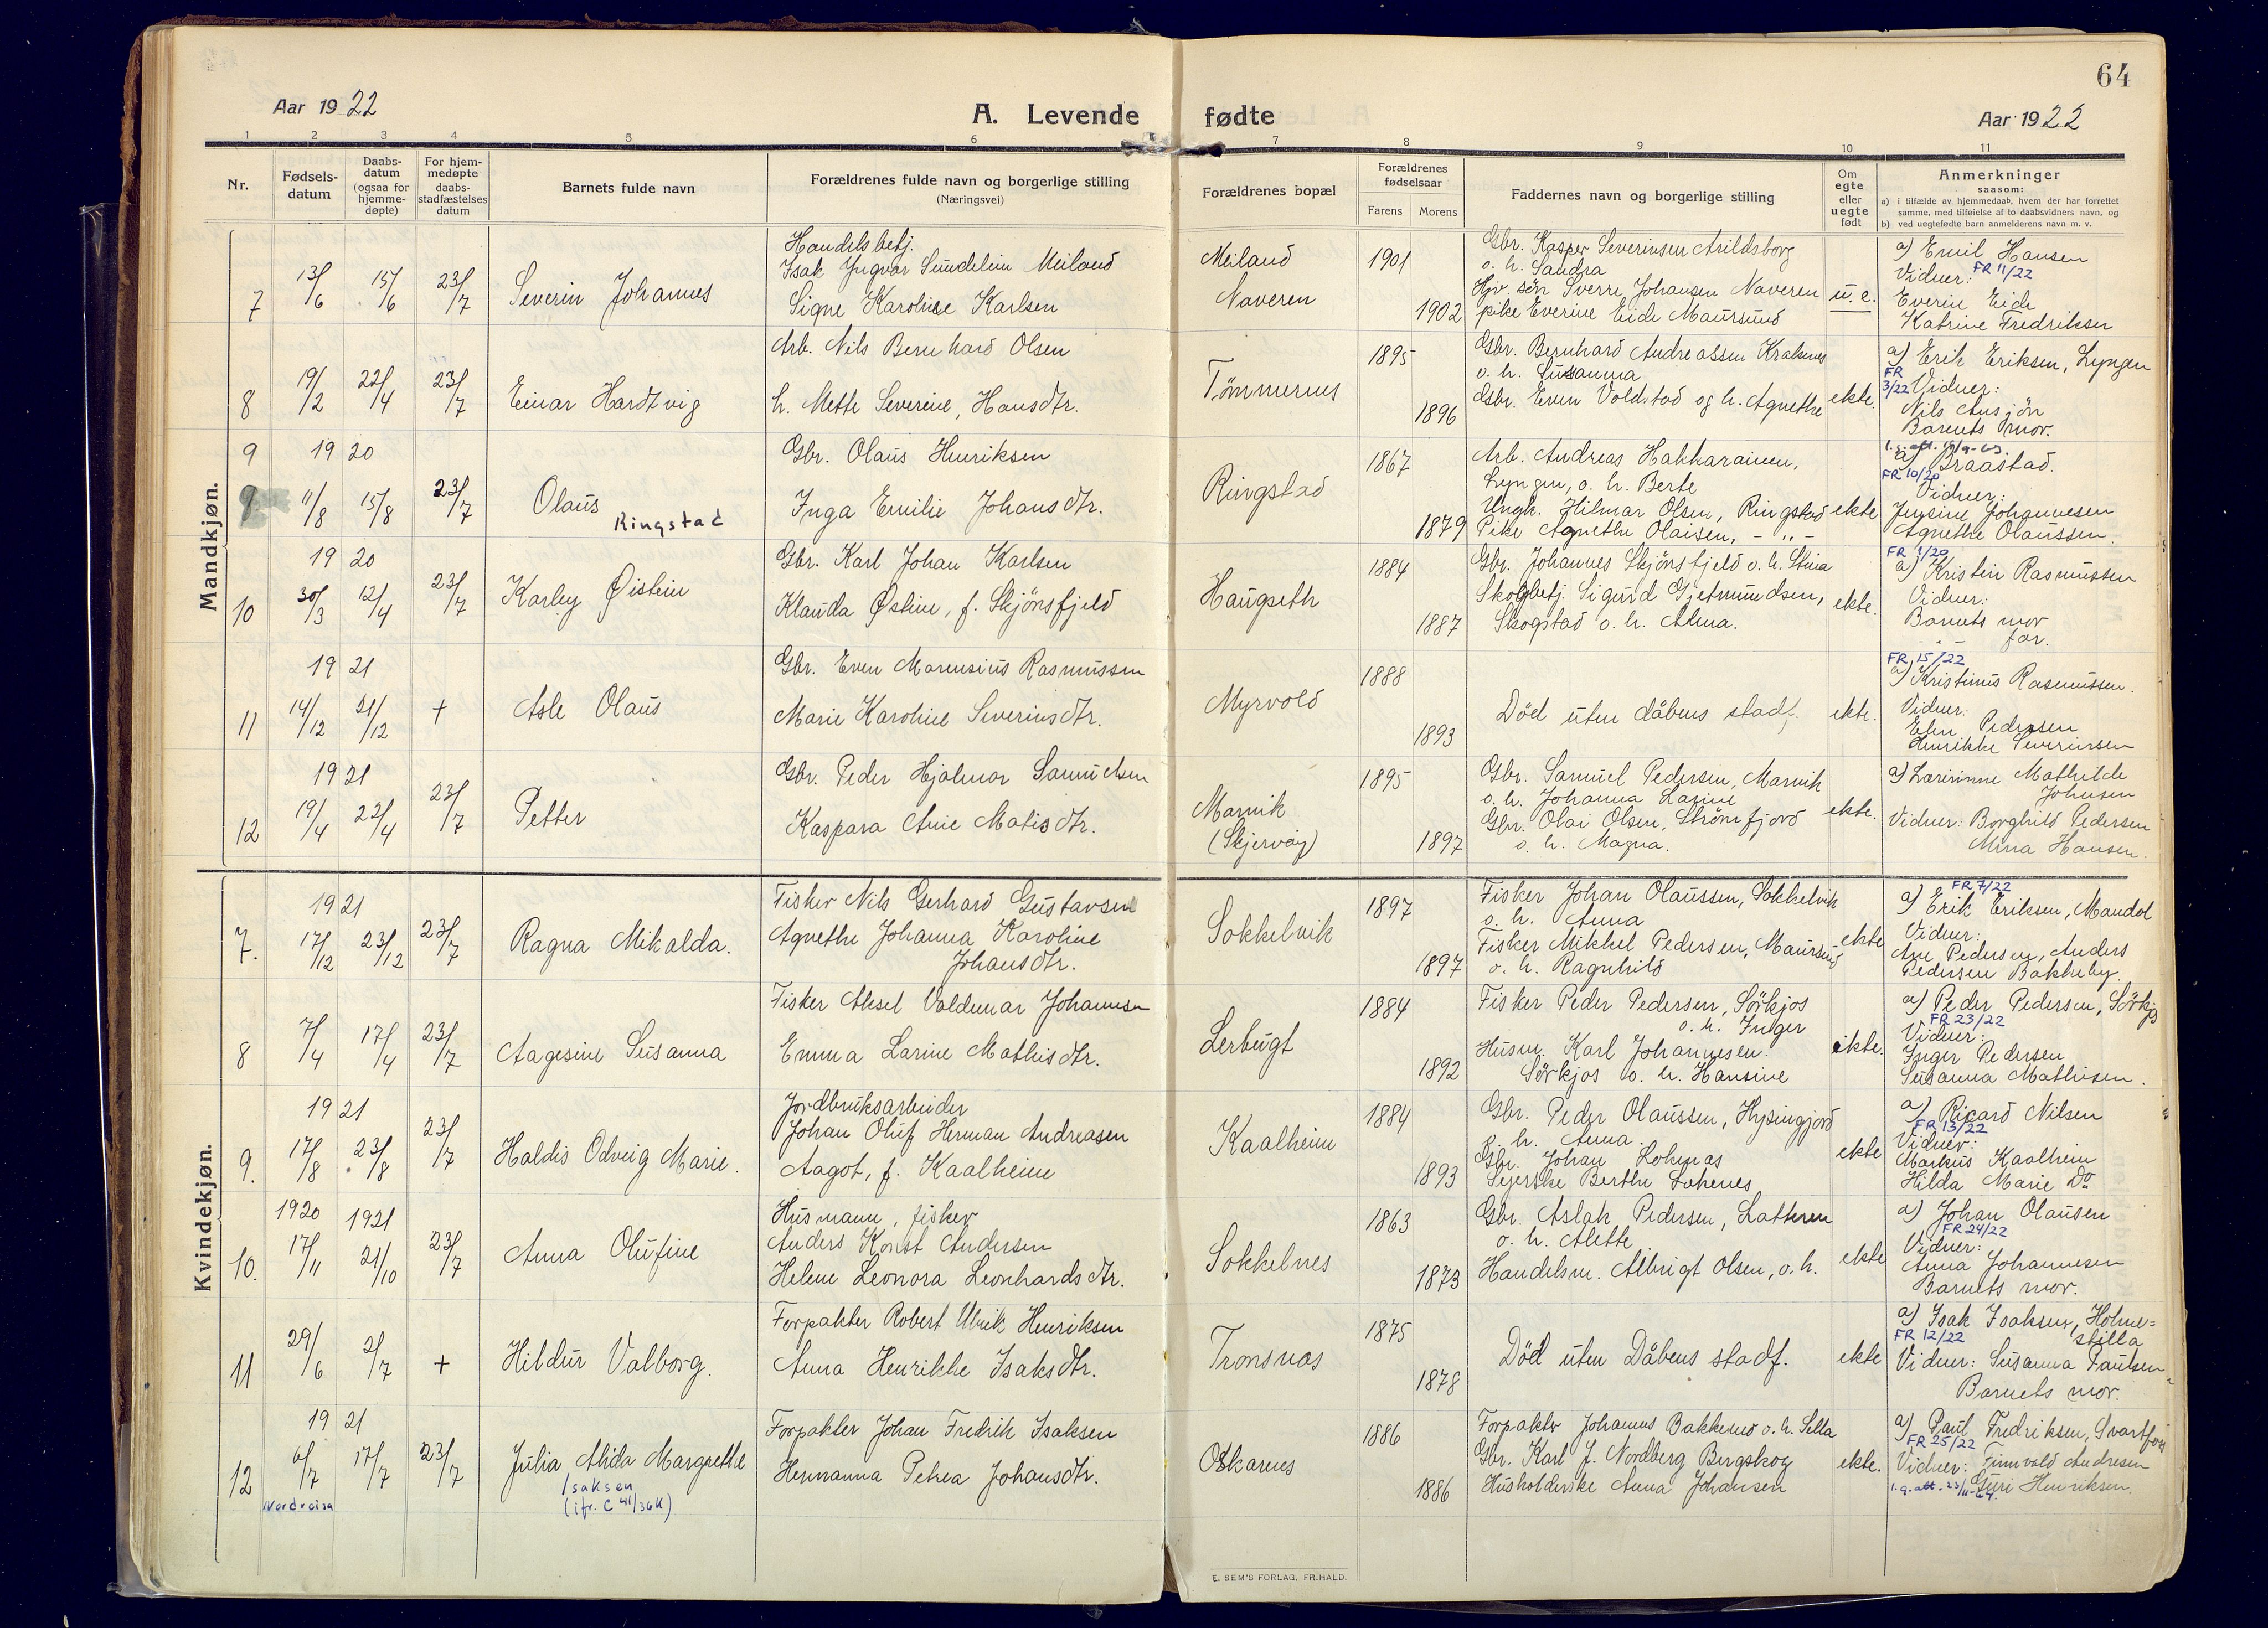 64
Aar 1922
A. Levende fødte
Aar 1922
1 2 3 4 5 6 7 8 9 10 11
Nr.
Fødsels-
datum
Daabs-
datum
(ogsaa for
hjemme-
døpte)
For hjem-
medøpte
daabs-
stadfæstelses
datum
Barnets fulde navn
Forældrenes fulde navn og borgerlige stilling
(Næringsvei)
Forældrenes bopæl
Forældrenes
fødselsaar
Farens Morens
Faddernes navn og borgerlige stilling
Om
egte
eller
uegte
født
Anmerkninger
saasom:
a) i tilfælde av hjemmedaab, hvem der har forrettet
samme, med tilføielse af to daabsvidners navn, og
b) ved uegtefødte barn anmelderens navn m. v.
Mandkjøn.
7 13/6 15/6 23/7 Severin Johannes
Handelsbetj.
Isak Yngvar Sundelin Meiland
Signe Karoline Karlsen
Meiland
Naveren
1901
1902
Gbr. Kasper Severinsen Arildsborg
o. h. Sandra
Hjv. søn Sverre Johansen Naveren
pike Everine Eide Maursund
u. e.
a) Emil Hansen
Vidner: FR 11/22
Everin Eide
Katrine Fredriksen
8 19/2 22/4 23/7 Einar Hardtvig
Arb. Nils Bernhard Olsen
h. Mette Severine, Hansdtr.
Tømmernes
1895
1896
Gbr. Bernhard Andreassen Kraksnes
o. h. Susanna
Gbr. Even Voldstad og h. Agnethe
ekte.
a) Erik Eriksen, Lyngen
FR
3/22 Vidner:
Nils Ansjøn
Barnets mor.
9 1920
9. 11/8 15/8 23/7 Olaus
Ringstad
Gbr. Olaus Henriksen
Inga Emilie Johansdtr.
Ringstad
1867
1879
Arb. Andreas Hakkarainen,
Lyngen, o. h. Berte
Ungk. Hilmar Olsen, Ringstad
Pike Agnethe Olaisen, - „ -
ekte
a) Braastad.
FR 10/20
Vidner:
Jensine Johannesen
Agnethe Olaussen.
1920
10 30/3 12/4 23/7 Karley Øistein
Gbr. Karl Johan Karlsen
Klauda Østine, f. Skjønsfjeld
Haugseth
1884
1887
Gbr. Johannes Skjønsfjeld o. h. Stina
Skogbetj. Sigurd Gjetmundsen,
Skogstad o. h. Alma.
ekte.
FR 1/20
a) Kristin Rasmussen
Vidner:
Barnets mor
- „ - far.
1921
11 14/12 21/12 + Asle Olaus
Gbr. Even Marensius Rasmussen
Marie Karoline Severinsdtr.
Myrvold
1888
1893
Død uten dåbens stadf.
ekte.
FR 15/22
a) Kristinus Rasmussen.
Vidner:
Elen Pedersen
Henrikke Severinsen
1921
12 19/4 22/4 23/7 Petter
Gbr. Peder Hjalmar Samuelsen
Kaspara Anie Matisdtr.
Marnik
(Skjervøy)
1895
1897
Gbr. Samuel Pedersen, Marnik
o. h. Johanna Larine
Gbr. Olai Olsen, Strømfjord
o. h. Magna.
ekte.
a) Larinne Mathilde
Johnsen
Vidner: Borghild Pedersen
Minna Hansen.
Kvindekjøn.
1921
7. 17/12 23/12 23/7 Ragna Mikalda.
Fisker Nils Gerhard Gustavsen
Agnethe Johanna Karoline
Johansdtr.
Sokkelvik
1897
1897
Fisker Johan Olaussen, Sokkelvik
o. h. Anna
Fisker Mikkel Pedersen, Maursund
o. h. Ragnhild
ekte
FR 7/22
a) Erik Eriksen, Mandal
Vidner:
Ane Pedersen, Anders
Pedersen Bakkeby.
8 7/4 17/4 23/7 Aagesine Susanna
Fisker Aksel Valdemar Johannsen
Emma Larine Mathisdtr.
Lerbugt
1884
1892
Fisker Peder Pedersen, Sørkjos
o. h. Inger
Husm. Karl Johannesen.
Sørkjos o. h. Hansine
ekte.
a) Peder Pedersen, Sørkjos
FR 23/22
Vidner:
Inger Pedersen
Susanna Mathisen.
1921
9. 17/8 23/8 23/7 Haldis Odveig Marie.
Jordbruksarbeider
Johan Oluf Herman Andreasen
Aagot, f. Kaalheim
Kaalheim
1884
1893
Gbr. Peder Olaussen, Hysingjord
o. h. Anna.
Gbr. Johan Lokenas
Syerske Berthe Lokenes
ekte
a) Ricard Nilsen
FR 13/22
Vidner:
Markus Kaalhein
Hilda Marie Do
1920 1921
10. 17/11 21/10 23/7 Anna Olufine
Husmann, fisker
Anders Konst Andersen
Helene Leonora Leonhardsdtr.
Sokkelnes
1863
1873
Gbr. Aslak Pedersen, Latteren
o. h. Alette
Handelsm. Albrigt Olsen, o. h.
ekte
a) Johan Olausen
FR 24/22
Vidner:
Anna Johannesen
Barnets mor.
11 29/6 2/7 + Hildur Valborg.
Forpakter Robert Ulrik Henriksen
Anna Henrikke Isaksdtr.
Tronsnas
1875
1878
Død uten Dåbens stadf.
ekte
a) Isak Isaksen, Holme=
stilla
FR 12/22
Vidner: Susanna Paulsen
Barnets mor.
1921
12 6/7 17/7 23/7 Julia Alida Margrethe
Nordreisa
Isaksen
(jfr. C 41/36K)
Forpakter Johan Fredrik Isaksen
Hermanna Petrea Johansdtr.
Oskarnes
1886
1886
Forpakter Johannes Bakkemo o. h. Sella
Gbr. Karl J. Nordberg Bergskog
Husholderske Anna Johansen
ekte.
a) Paul Fredriksen, Svartfoss
FR 25/22
Vidner: Finnvold Andresen
l.g. att. 23/11-64. Guri Henriksen.
E. SEM'S FORLAG, FR.HALD.